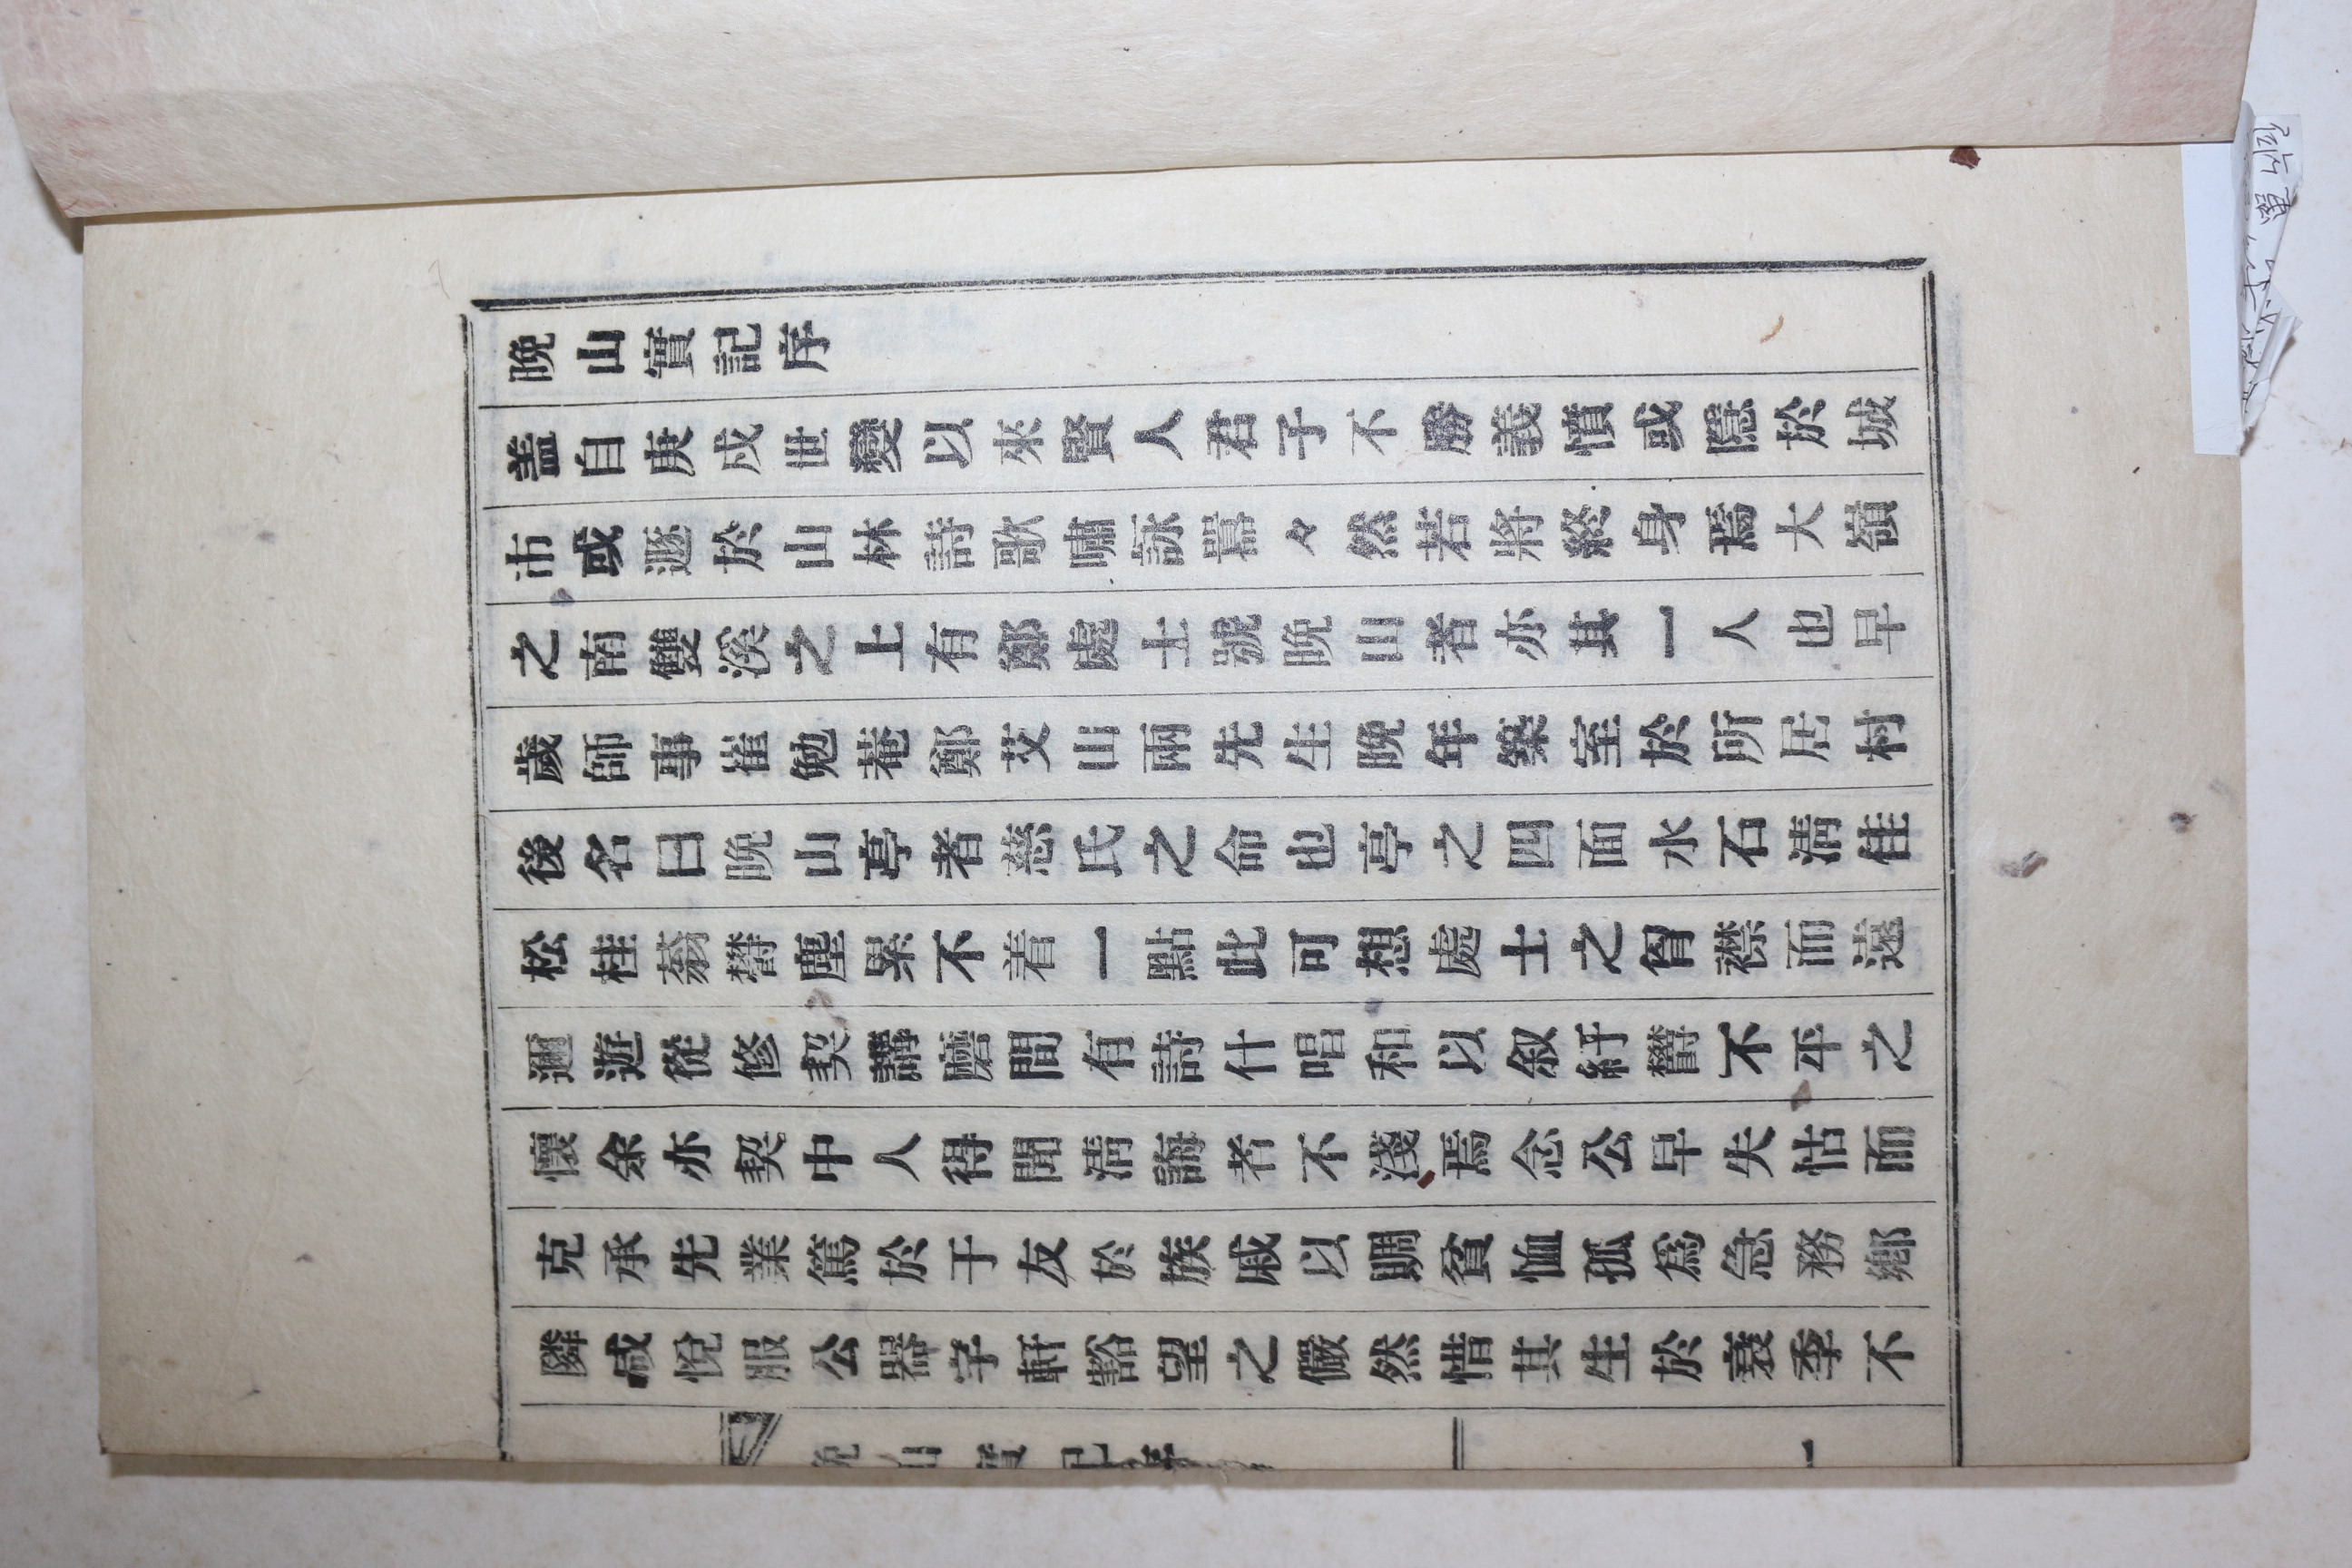 晩山實記序
盖自庚戌世變以來賢人君子不勝義憤或隱於城
市或遯於山林詩歌嘯詠囂々然若將終身焉大嶺
之南雙溪之上有鄭處士號晩山者亦其一人也早
歲師事崔勉菴鄭艾山兩先生晩年築室於所居村
後名曰晩山亭者慈氏之命也亭之四面水石淸佳
松桂蓊欝塵累不着一點此可想處士之胷襟而遠
邇遊從修契講磨間有詩什唱和以叙紆欝不平之
懷余亦契中人得聞淸誨者不淺焉念公早失怙而
克承先業篤於于友於族戚以賙貧恤孤爲急務鄕
隣咸悅服公器宇軒豁望之儼然惜其生於衰季不
晩山實記序
一